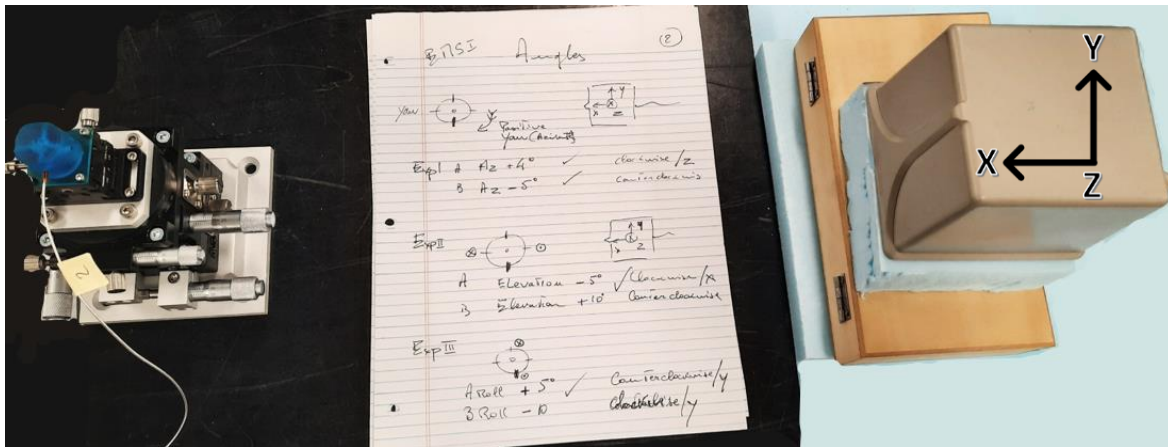 2
Angles
2
yaw
Y
X
Z
Positive
yaw (Azimuth)
Exp I A Az +4° ✓ clockwise/z
B Az -5° ✓ counterclockwis
Exp II
Y
X
Z
A Elevation -5° ✓ Clockwise/x
B Elevation +10° Counterclockwise
Exp III
A Roll +5° ✓ Counterclockwise/y
B Roll -10 clockwise/y
Y
X
Z